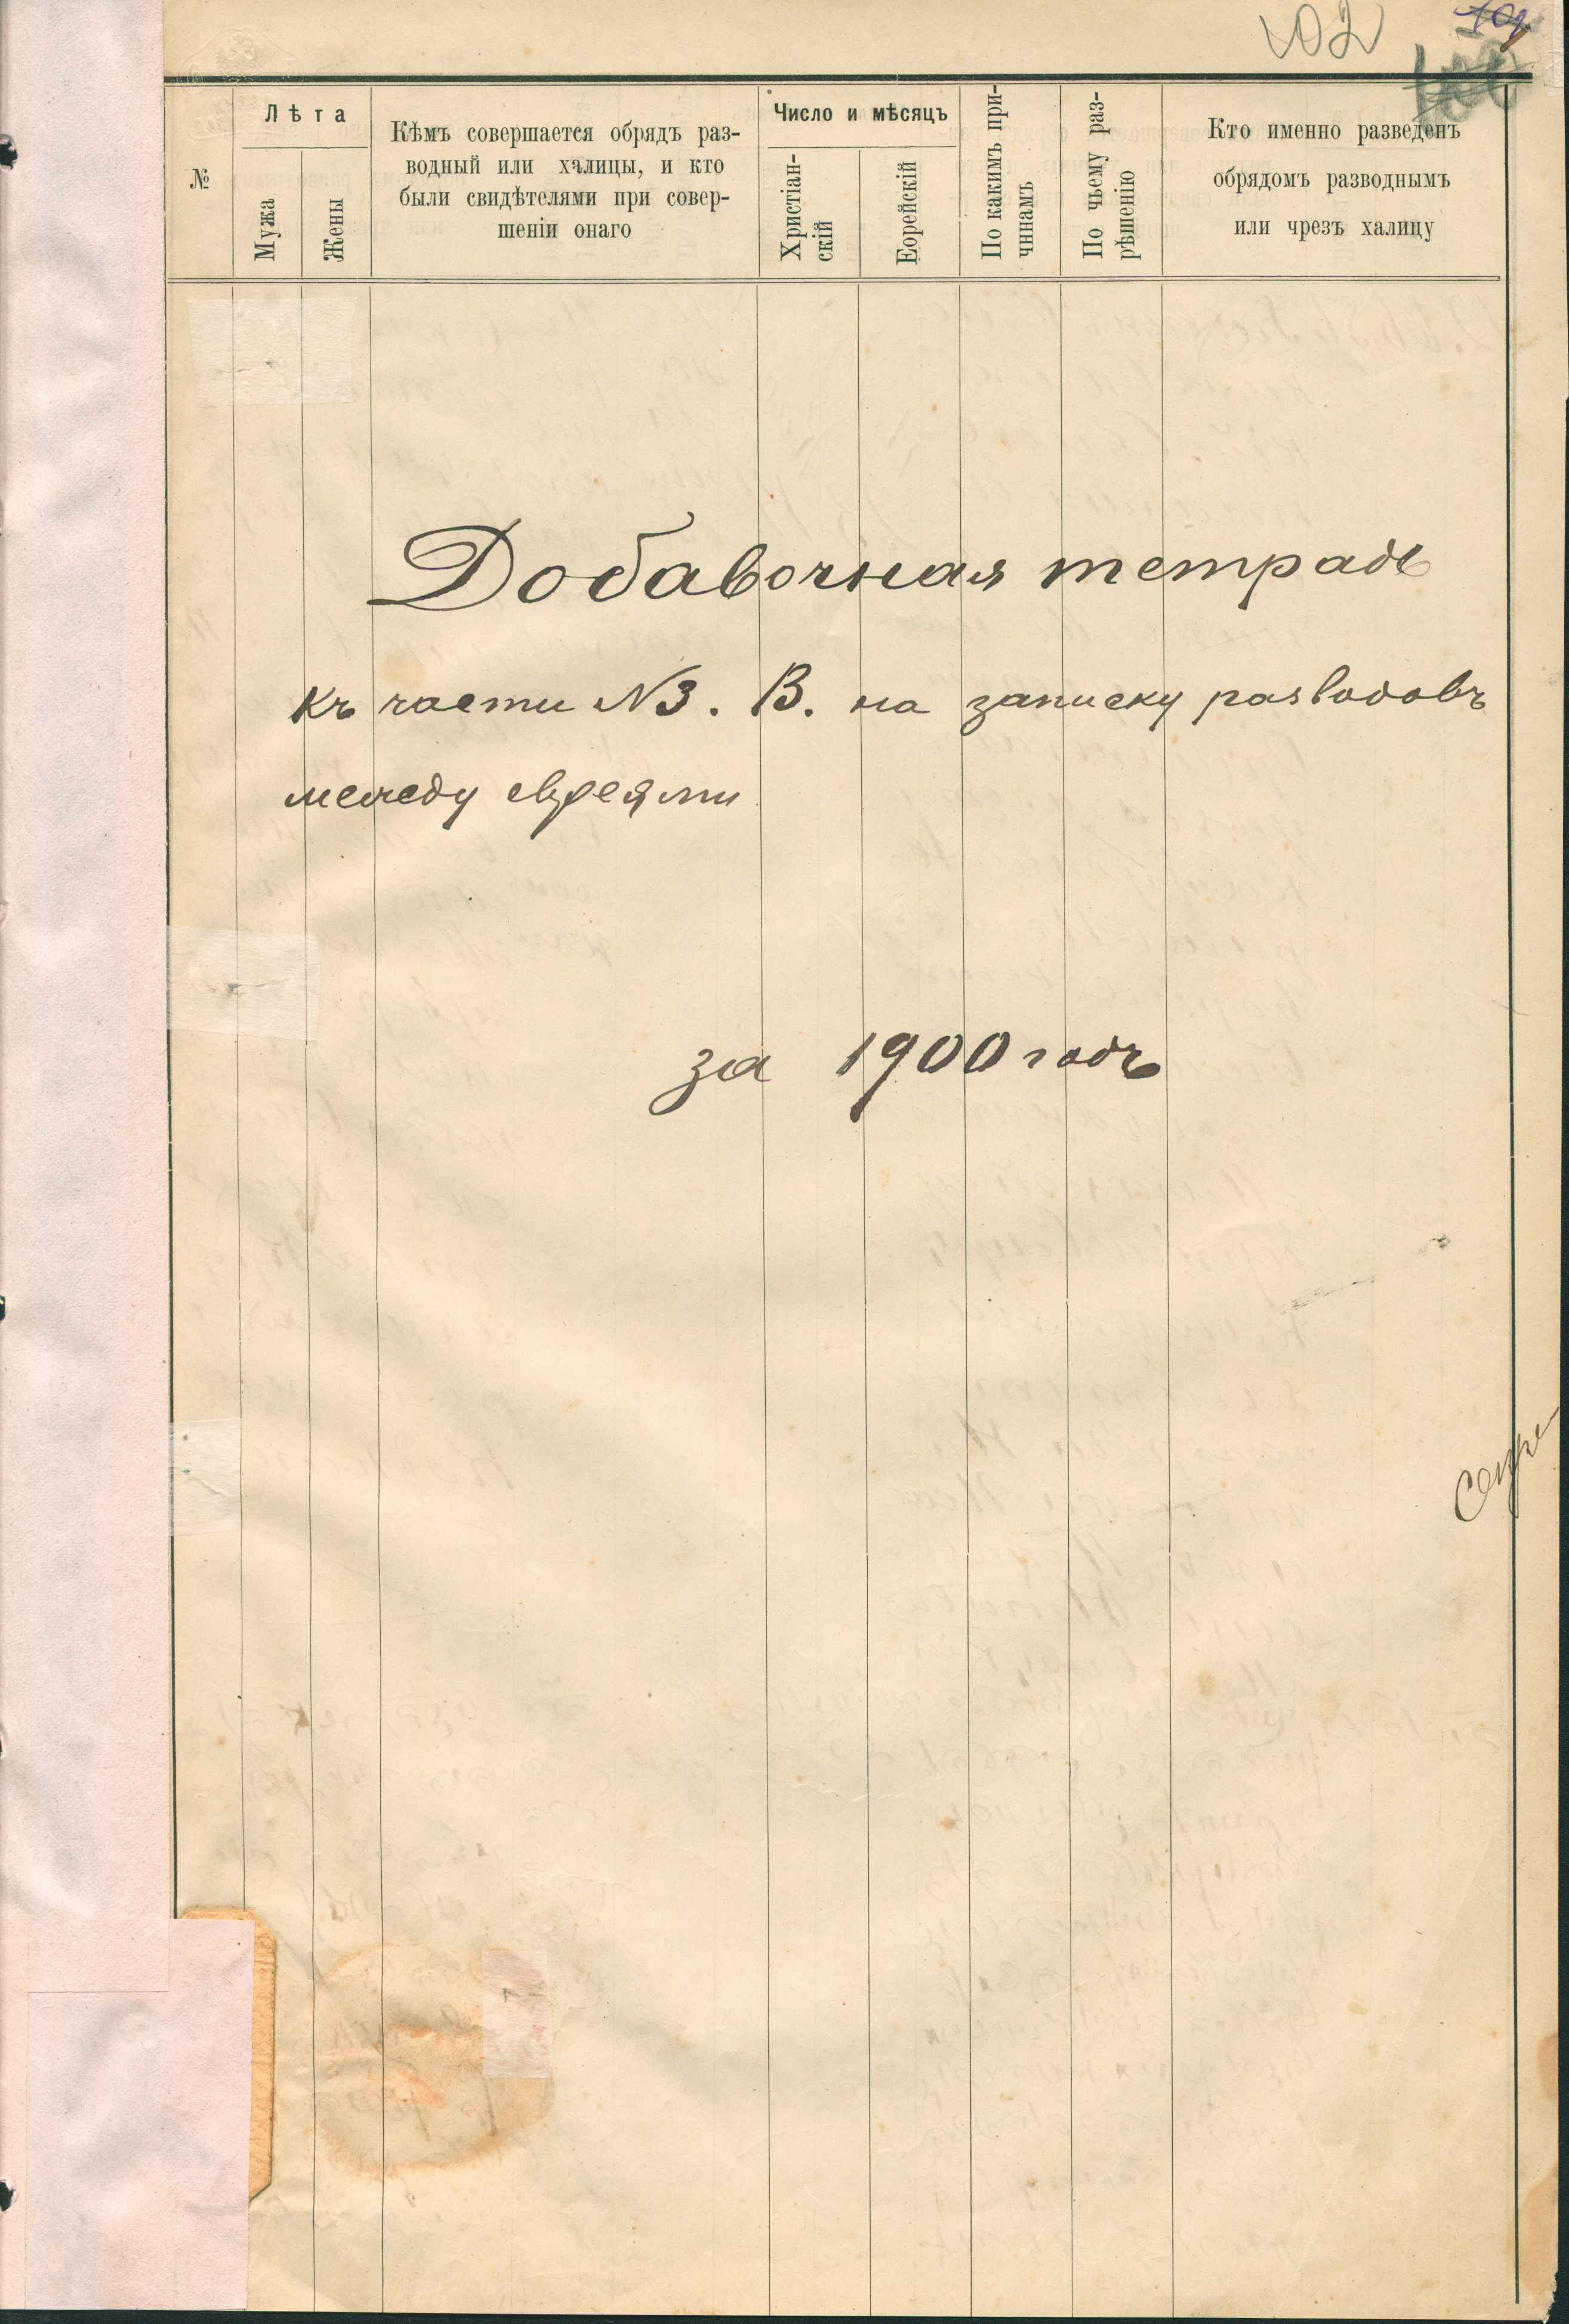 102
№
Лѣта
Мужа
Жены
Кѣмъ совершается обрядъ раз-
водный или халицы, и кто
были свидѣтелями при совер-
шеніи онаго
Число и мѣсяцъ
Христіан-
скій
Еорейскій
По какимъ при-
чинамъ
По чьему раз-
рѣшенію
Кто именно разведенъ
обрядомъ разводнымъ
или чрезъ халицу
Добавочная тетрадь
къ части №3. В. на записку разводовъ
между евреями
за 1900 годъ